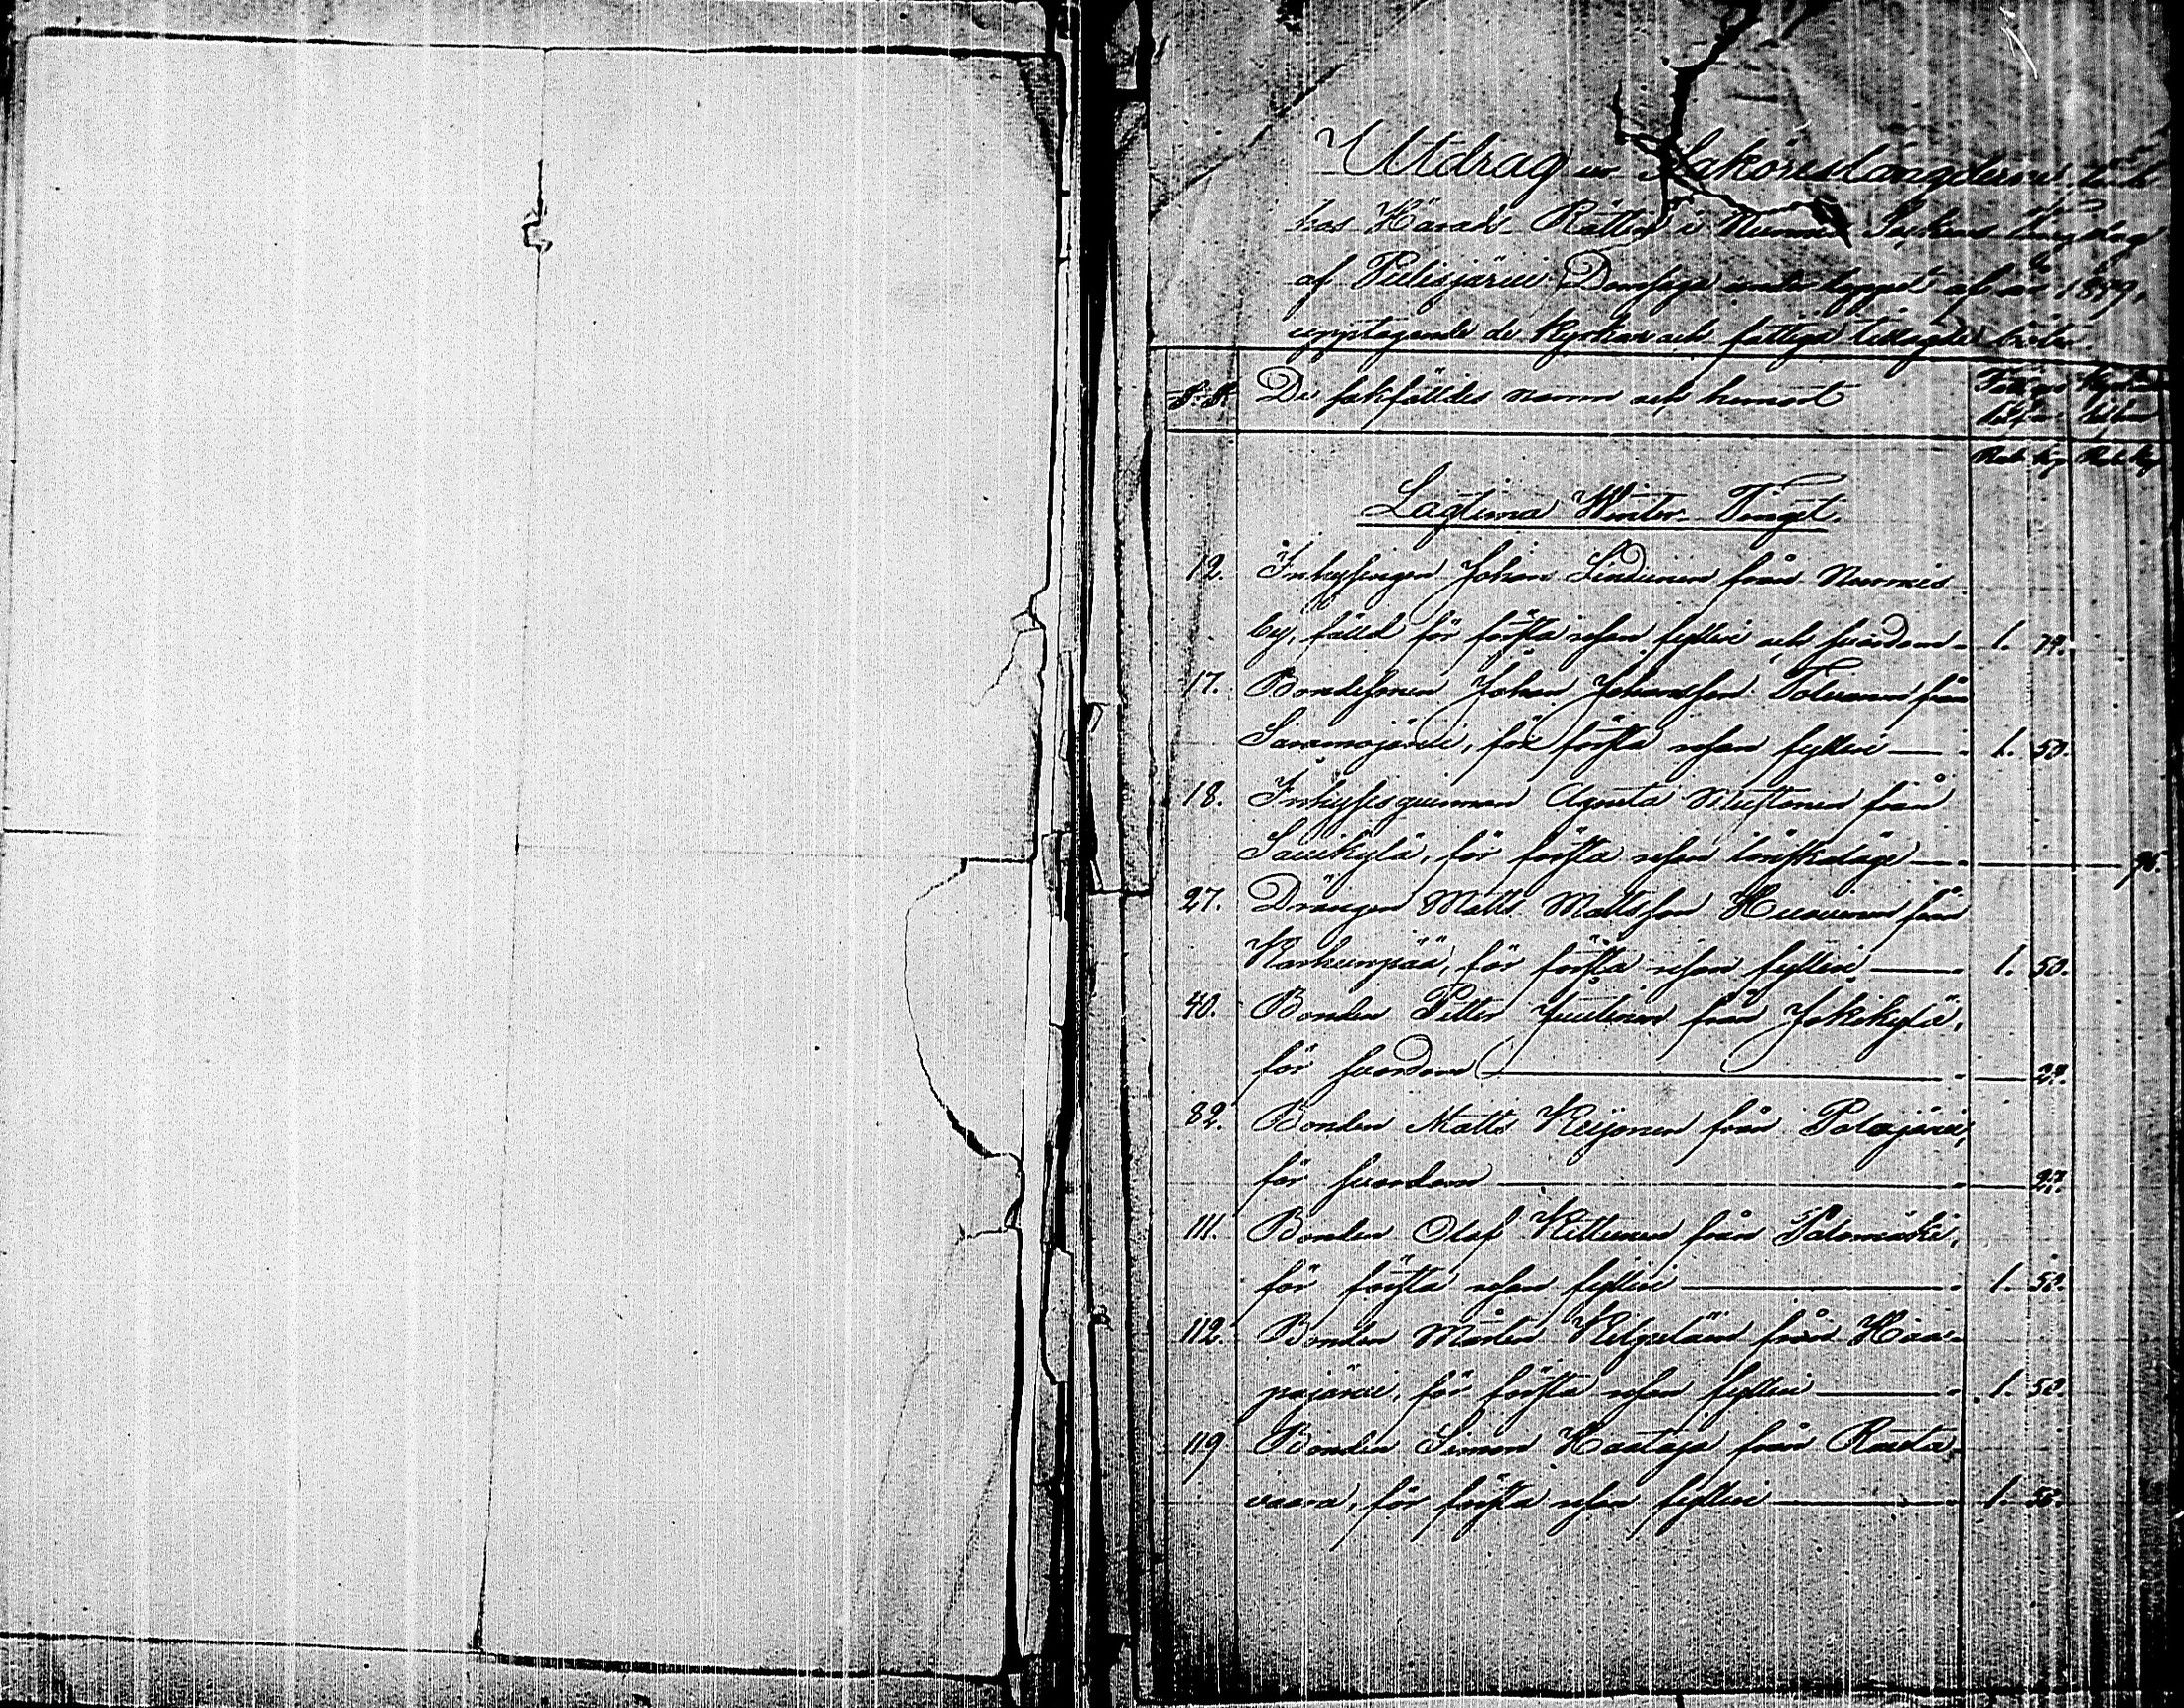 Utdrag ur Saköreslängderne
hos Härads Rätten i Nurmis Sockens tingslag
af Pielisjärvi Domsaga under loppet af år 1859,
upptagande de Kyrkan och fattige tillagde böter.
§. §. De sakfälldes namn och hemort
Rub. kop. Rub. kop.
Lagtima Winter-Tinget.
12. Inhysingen Johan Sinduinen från Nurmis
by, fälld för första resan fylleri och svordom 1. 79.
17. Bondesonen Johan Johansson Tolvanen från
Saramojärvi, för första resan fylleri 1. 50.
18. Inhyses qvinnan Agneta Mustonen från
Savikylä, för första resan lönskaläge 96.
27. Drängen Matts Mattsson Heiveinen från
Karhunpää, för första resan fylleri 1. 50.
40. Bonden Petter Juutinen från Jokikylä,
för svordom 29.
82. Bonden Matts Keijonen från Palojärvi,
för svordom 29.
111. Bonden Olof Kettunen från Palomäki,
för första resan fylleri 1. 50.
112. Bonden Mårten Kilpeläin från Haa-
pajärvi, för första resan fylleri 1. 50.
119 Bonden Simon Haataja från Rauta
vaara, för första resan fylleri 1. 50.